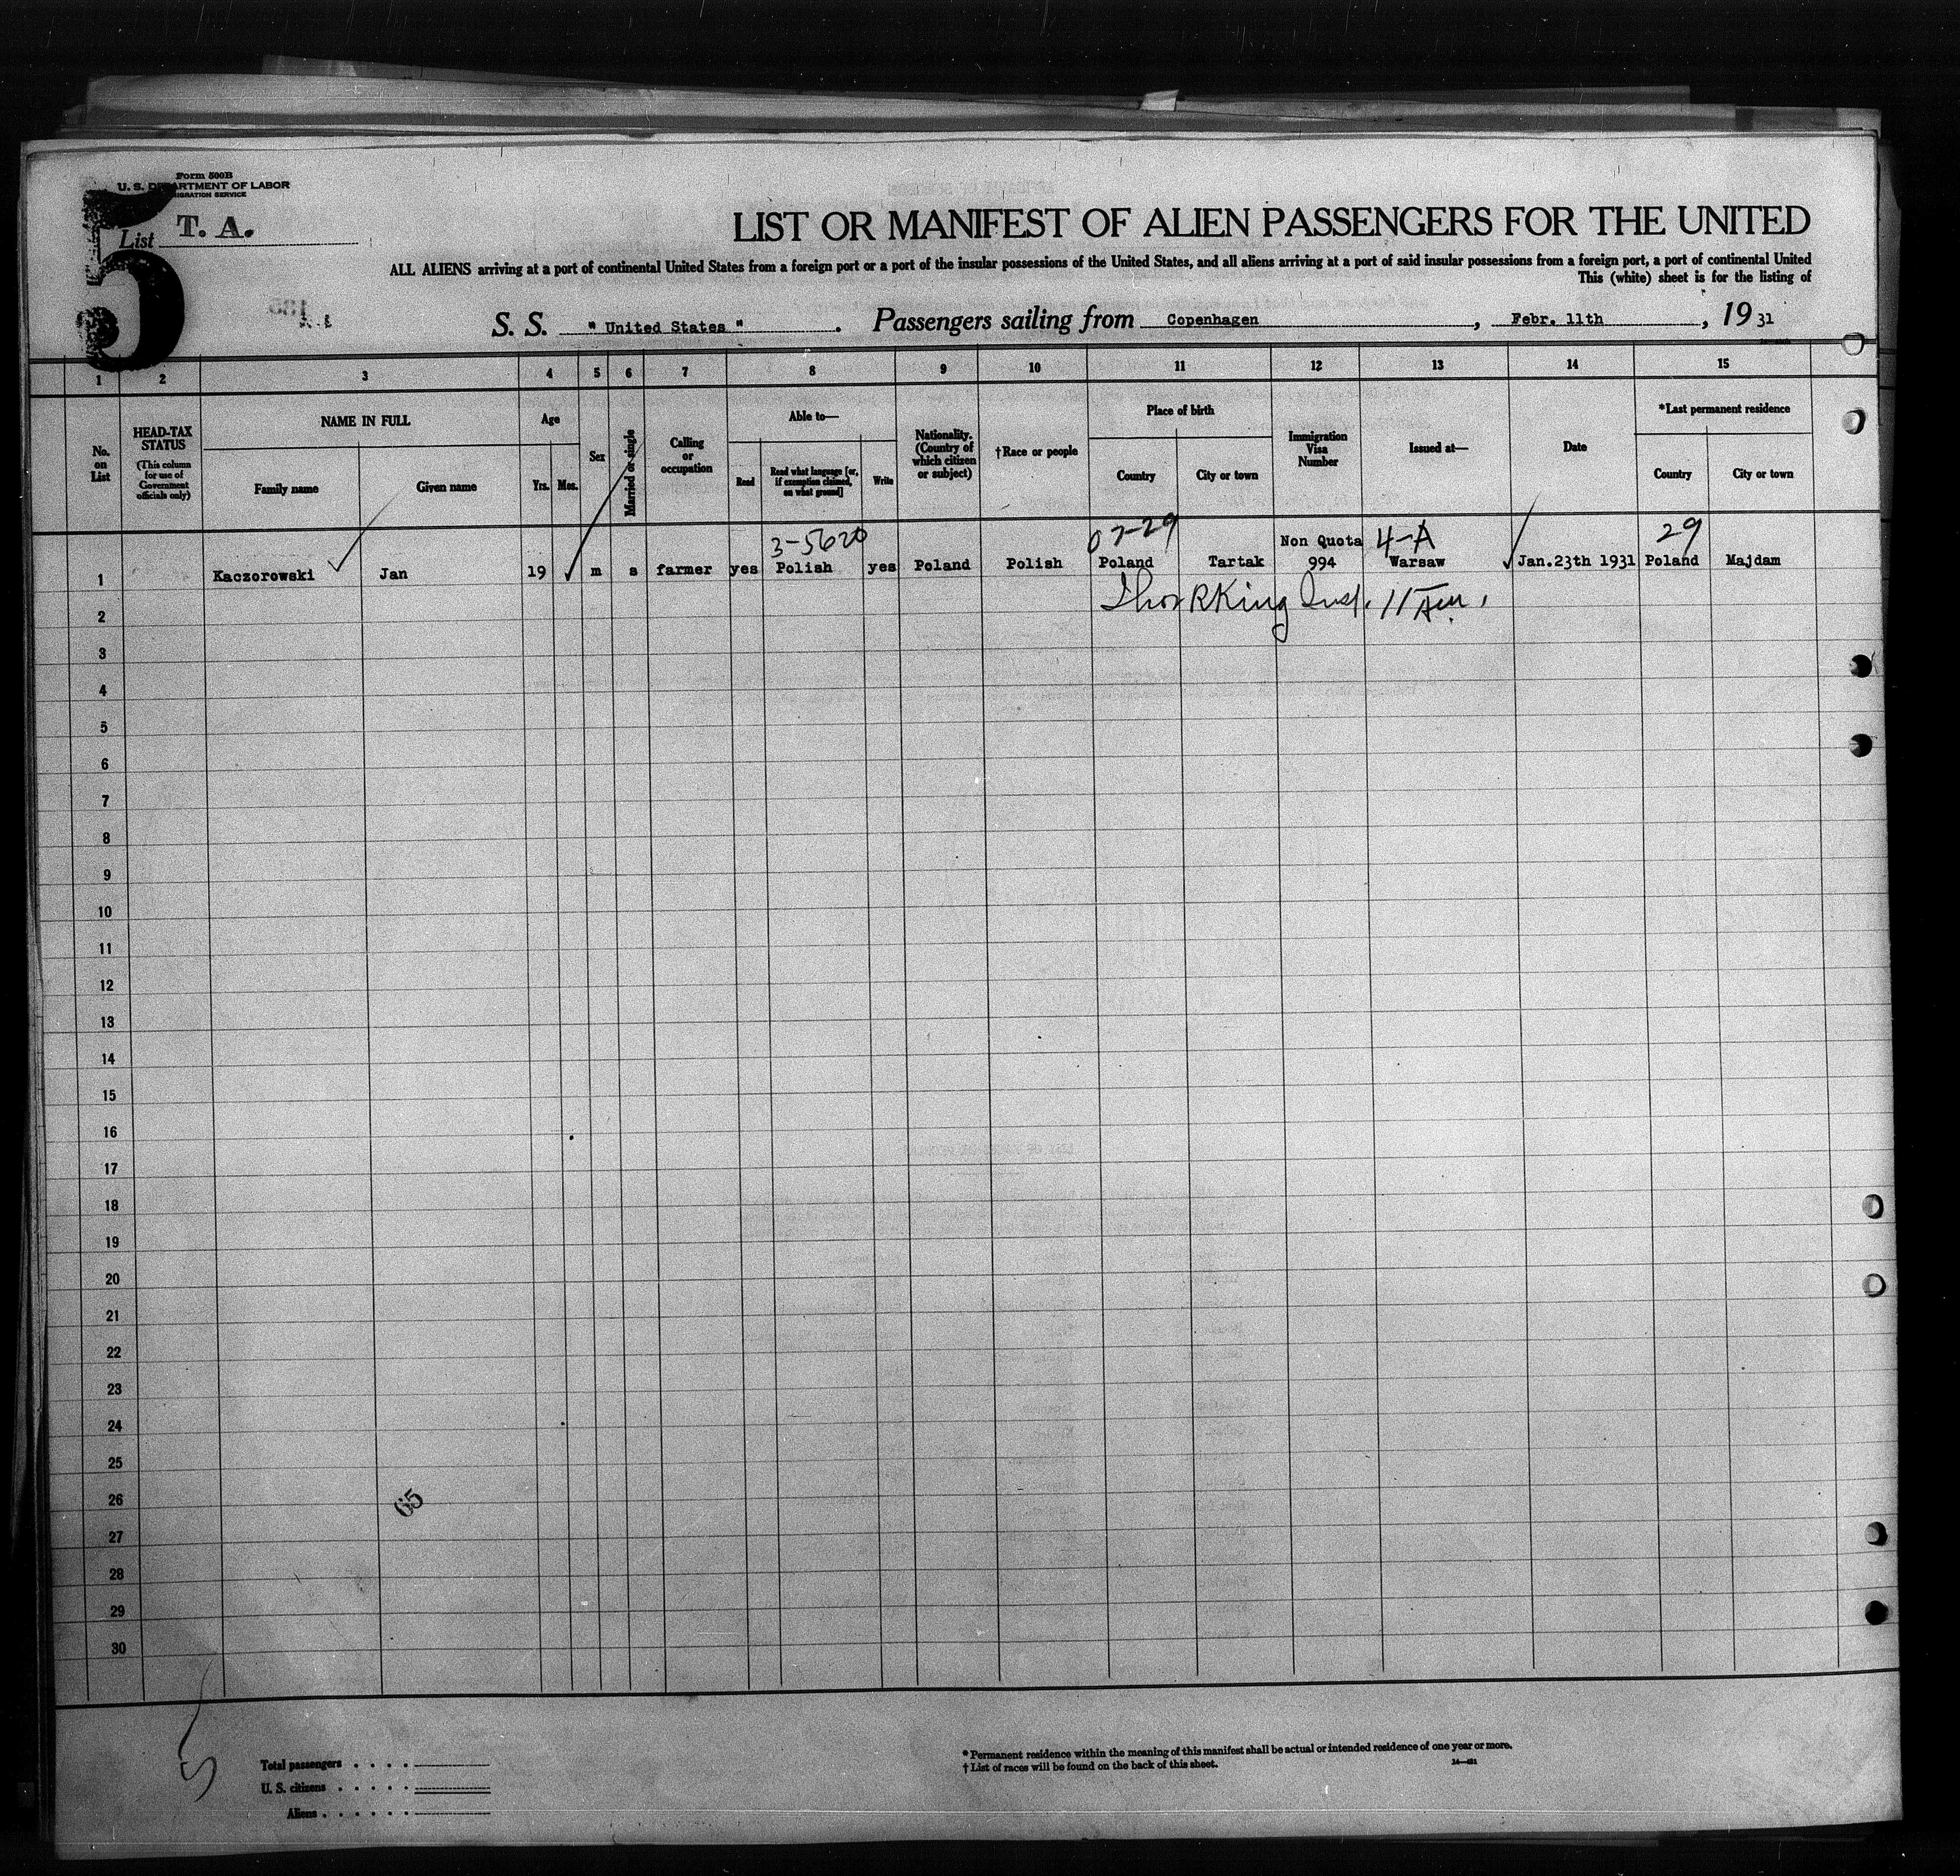 Form 500B
U. S. DEPARTMENT OF LABOR
IMMIGRATION SERVICE
5
List T. A.
LIST OR MANIFEST OF ALIEN PASSENGERS FOR THE UNITED
ALL ALIENS arriving at a port of continental United States from a foreign port or a port of the insular possessions of the United States, and all aliens arriving at a port of said insular possessions from a foreign port, a port of continental United
This (white) sheet is for the listing of
S. S. "United States". Passengers sailing from Copenhagen, Febr. 11th, 1931
1 2 3 4 5 6 7 8 9 10 11 12 13 14 15
No. on List
HEAD-TAX STATUS (This column for use of Government officials only)
NAME IN FULL
Family name
Given name
Age
Yrs. Mos.
Sex
Married or single
Calling or occupation
Able to—
Read
Read what language [or, if exemption claimed, on what ground]
Write
Nationality. (Country of which citizen or subject)
†Race or people
Place of birth
Country
City or town
Immigration Visa Number
Issued at—
Date
*Last permanent residence
Country
City or town
3-5620 07-29 Non Quota 4-A 29
1 Kaczorowski Jan 19 m s farmer yes Polish yes Poland Polish Poland Tartak 994 Warsaw Jan.23th 1931 Poland Majdam
Thos R King Insp.
2
3
4
5
6
7
8
9
10
11
12
13
14
15
16
17
18
19
20
21
22
23
24
25
26
65
27
28
29
30
5
Total passengers
U. S. citizens
Aliens
* Permanent residence within the meaning of this manifest shall be actual or intended residence of one year or more.
† List of races will be found on the back of this sheet.